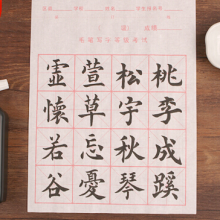 桃李成蹊
松宇秋琴
萱草忘憂
虚懷若谷